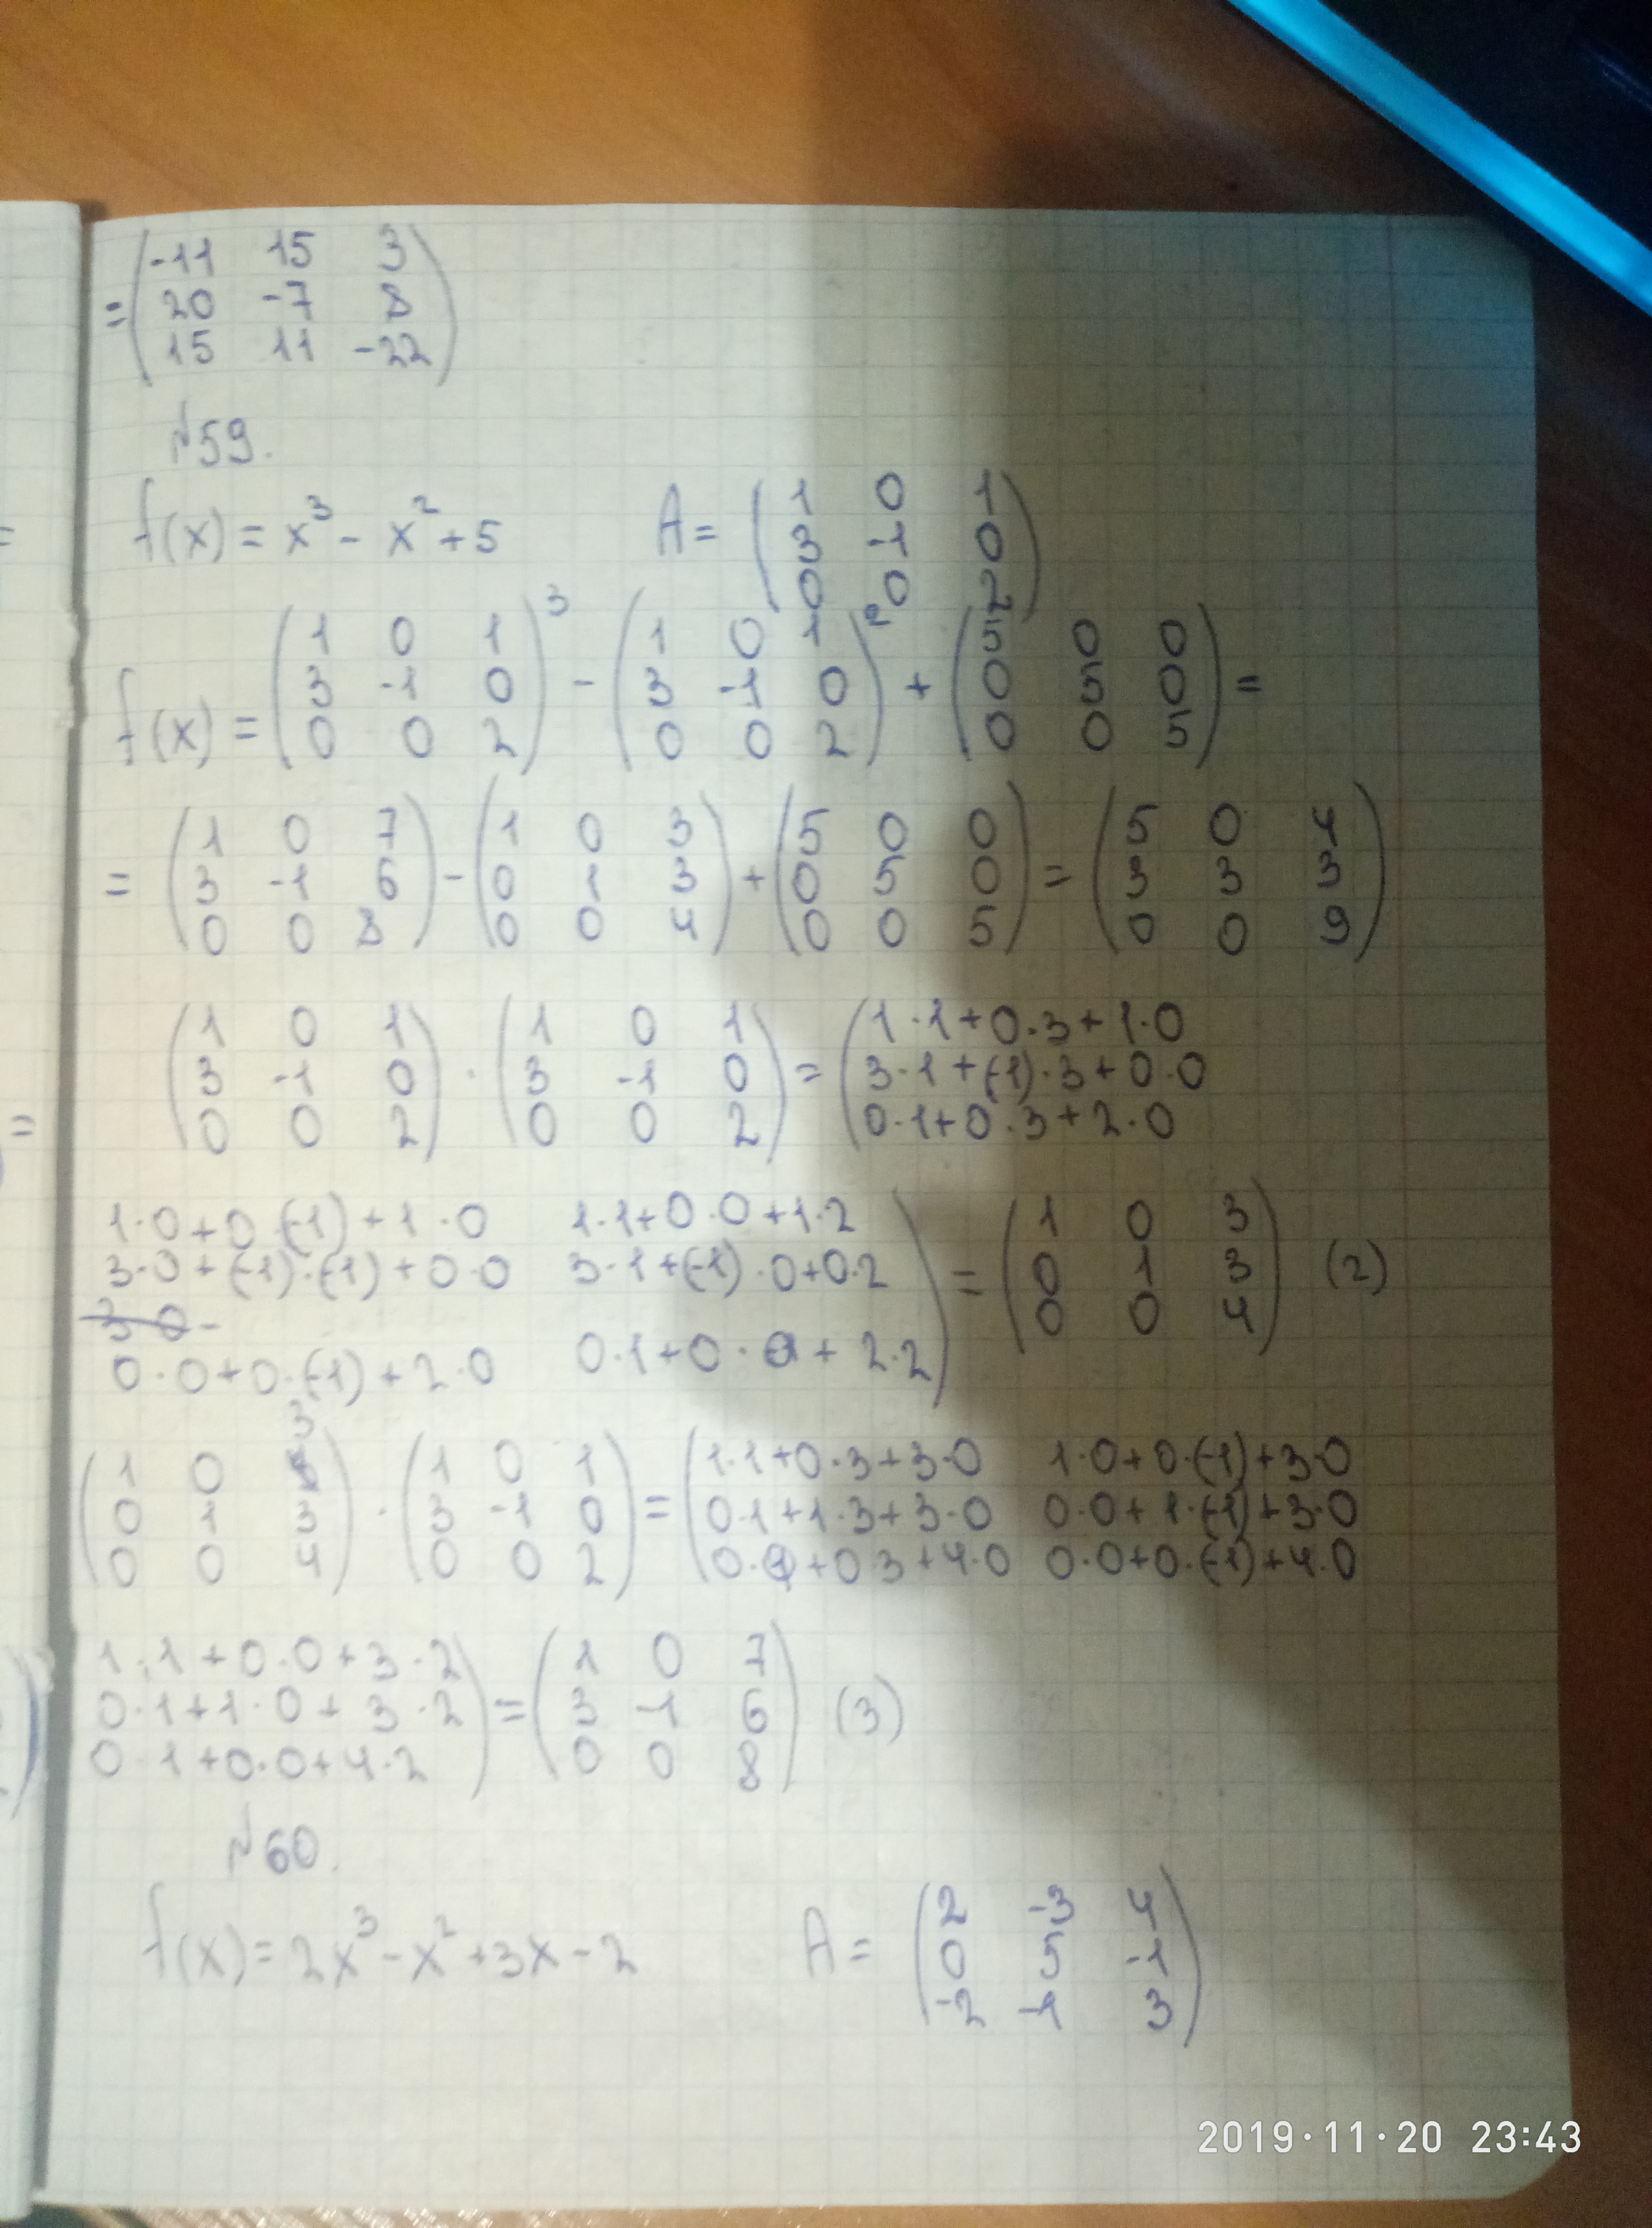 = (-11 15 3
20 -7 8
15 11 -22)
№59.
f(x) = x³ - x² + 5 A = (1 0 1
3 -1 0
0 0 2)
f(x) = (1 0 1
3 -1 0
0 0 2)³ - (1 0 1
3 -1 0
0 0 2)² + (5 0 0
0 5 0
0 0 5) =
= (1 0 7
3 -1 6
0 0 8) - (1 0 3
0 1 3
0 0 4) + (5 0 0
0 5 0
0 0 5) = (5 0 4
3 3 3
0 0 9)
(1 0 1
3 -1 0
0 0 2) · (1 0 1
3 -1 0
0 0 2) = (1·1+0·3+1·0
3·1+(-1)·3+0·0
0·1+0·3+2·0
1·0+0·(-1)+1·0 1·1+0·0+1·2
3·0+(-1)·(-1)+0·0 3·1+(-1)·0+0·2
0·0+0·(-1)+2·0 0·1+0·0+2·2) = (1 0 3
0 1 3
0 0 4) (2)
(1 0 3
0 1 3
0 0 4) · (1 0 1
3 -1 0
0 0 2) = (1·1+0·3+3·0 1·0+0·(-1)+3·0
0·1+1·3+3·0 0·0+1·(-1)+3·0
0·1+0·3+4·0 0·0+0·(-1)+4·0
1·1+0·0+3·2
0·1+1·0+3·2
0·1+0·0+4·2) = (1 0 7
3 -1 6
0 0 8) (3)
№60.
f(x) = 2x³ - x² + 3x - 2 A = (2 -3 4
0 5 -1
-2 -1 3)
2019·11·20 23:43